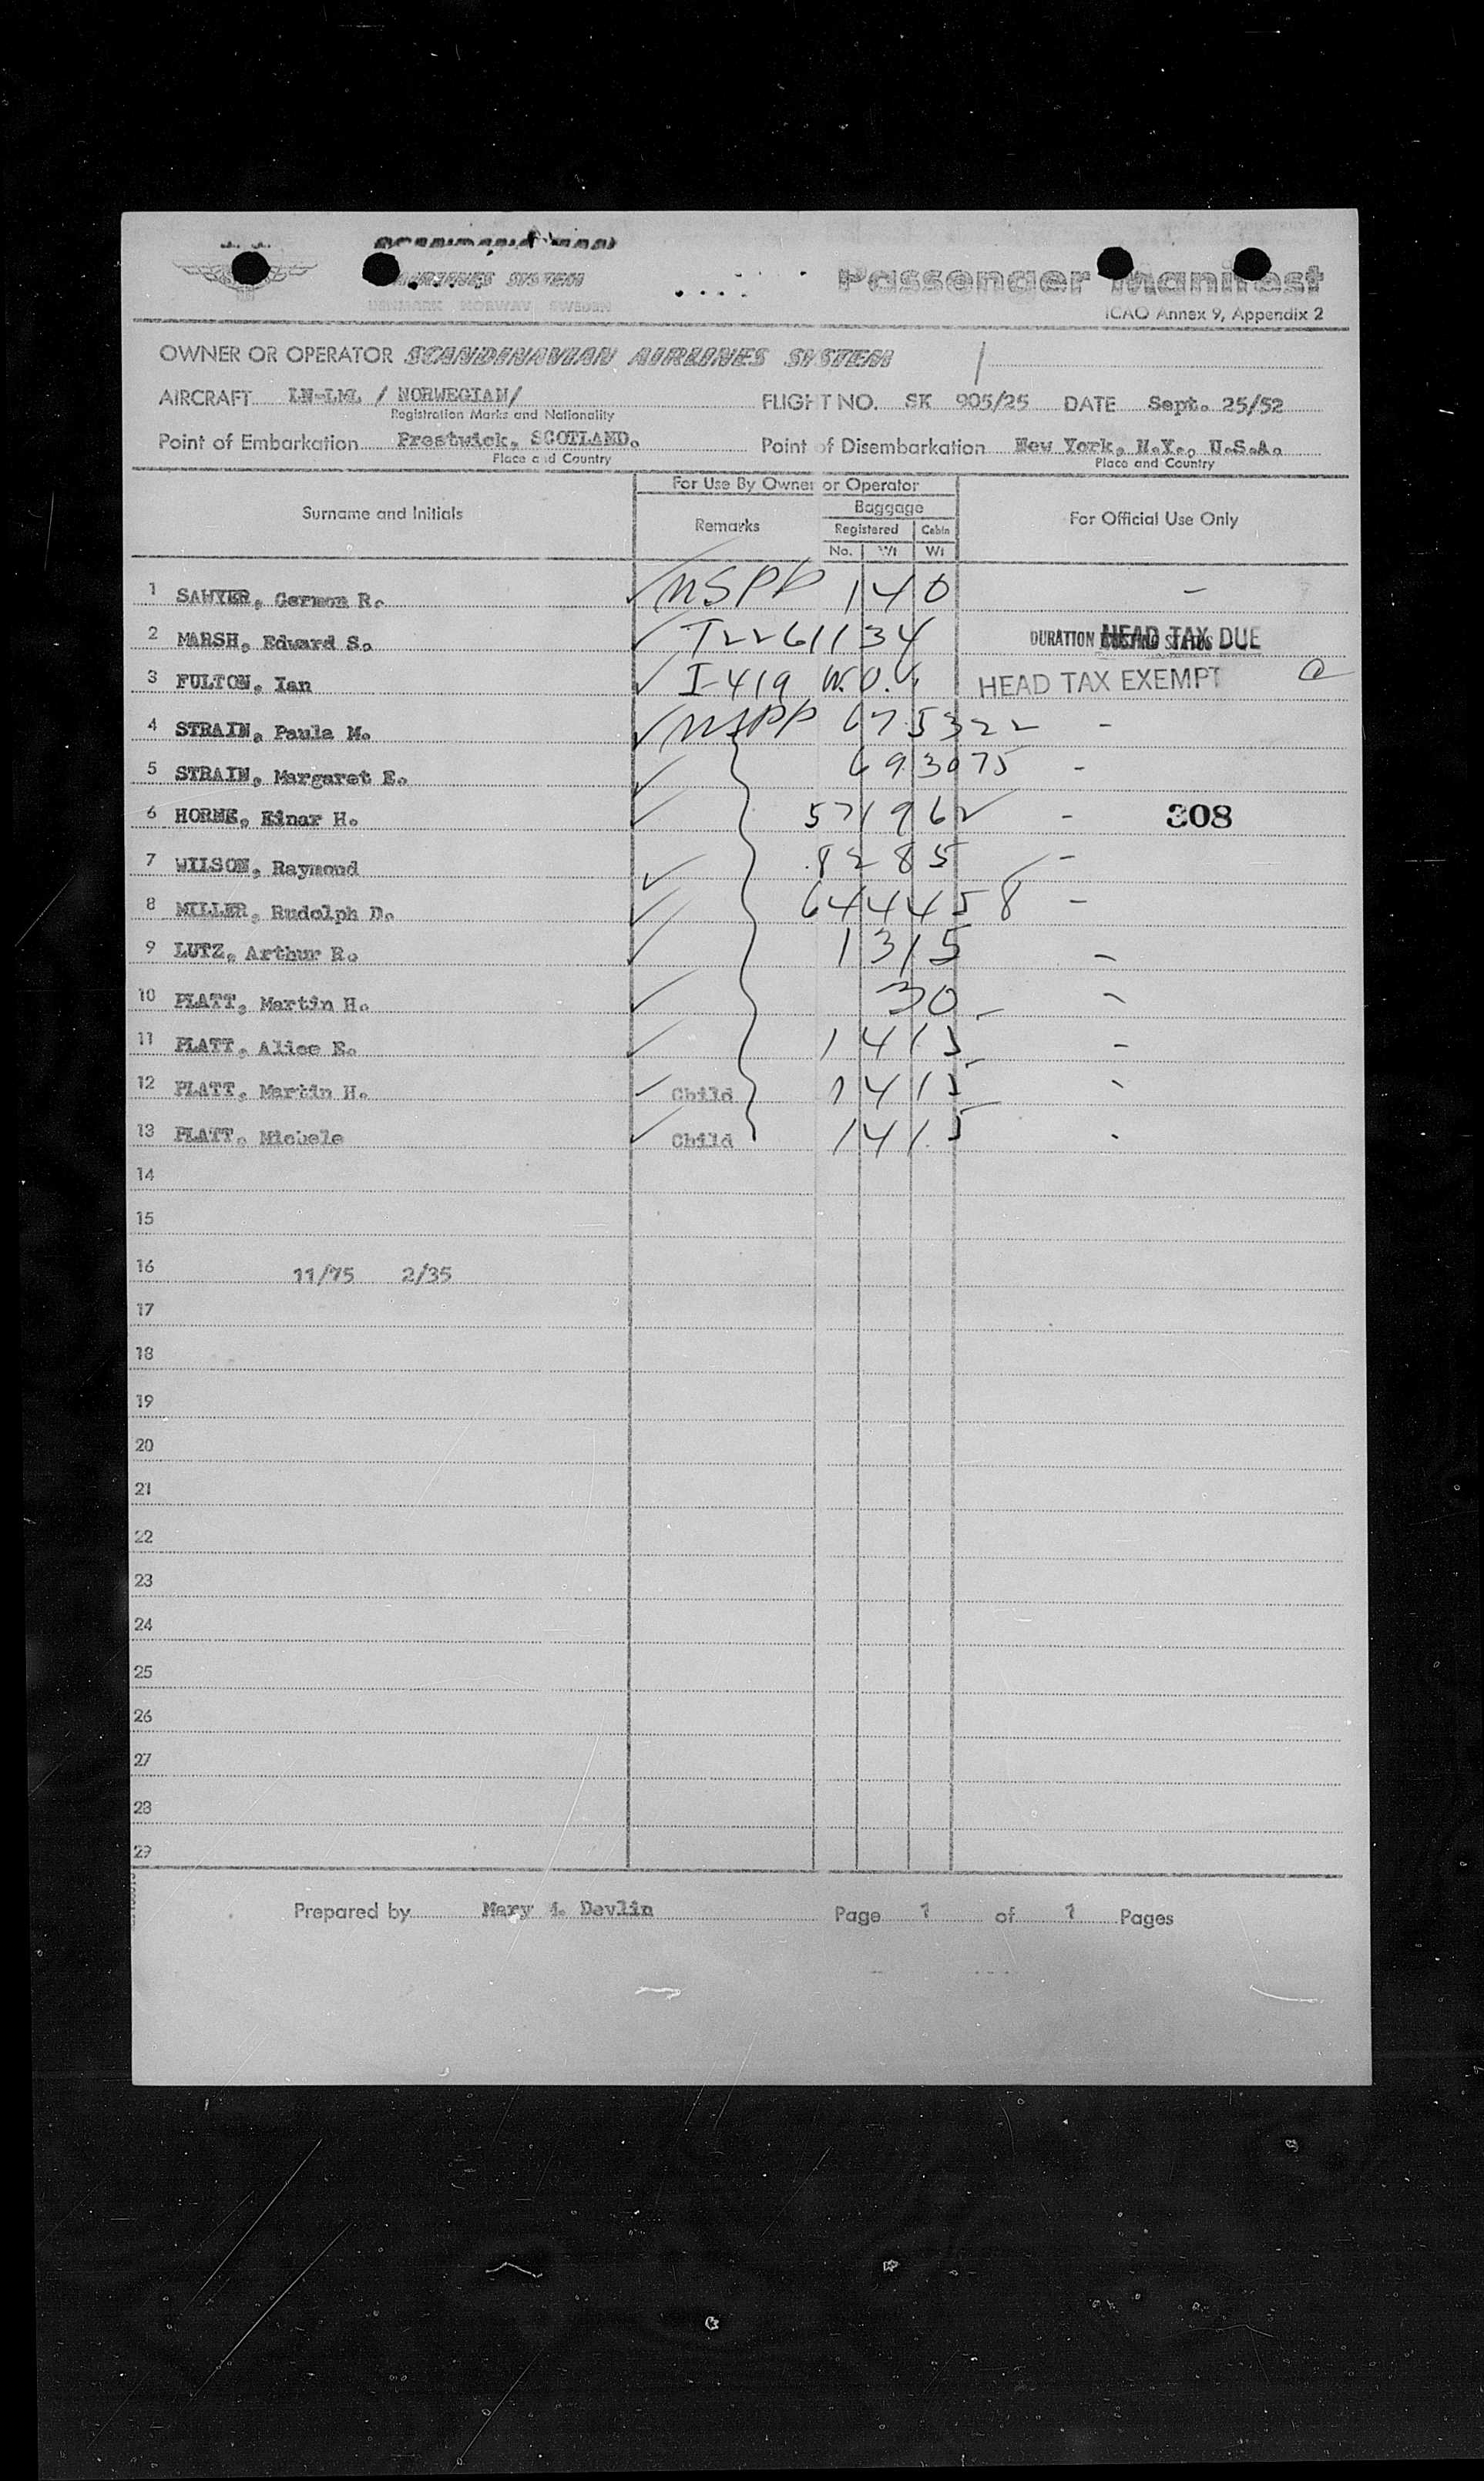 AIRLINES SYSTEM
DENMARK NORWAY SWEDEN
Passenger Manifest
ICAO Annex 9, Appendix 2
OWNER OR OPERATOR SCANDINAVIAN AIRLINES SYSTEM
AIRCRAFT LN-LML / NORWEGIAN/ FLIGHT NO. SK 905/25 DATE Sept. 25/52
Registration Marks and Nationality
Point of Embarkation Prestwick, SCOTLAND. Point of Disembarkation New York, N.Y., U.S.A.
Place and Country Place and Country
For Use By Owner or Operator
Surname and Initials Remarks Baggage For Official Use Only
Registered Cabin
No. Wt Wt
1 SAWYER, Carmon R. USPP 140 -
2 MARSH, Edward S. T2261134 DURATION STATUS HEAD TAX DUE
3 FULTON, Ian I-419 HEAD TAX EXEMPT
4 STRAIN, Paula M. USPP 675322 -
5 STRAIN, Margaret E. 693075 -
6 HORNE, Einar H. 571962 - 308
7 WILSON, Raymond 8285 -
8 MILLER, Rudolph D. 644458 -
9 LUTZ, Arthur R. 1315 -
10 PLATT, Martin H. 30 -
11 PLATT, Alice E. 1415 -
12 PLATT, Martin H. Child 1415
13 PLATT, Michele Child 1415
14
15
16 11/75 2/35
17
18
19
20
21
22
23
24
25
26
27
28
29
Prepared by Mary M. Devlin Page 1 of 1 Pages